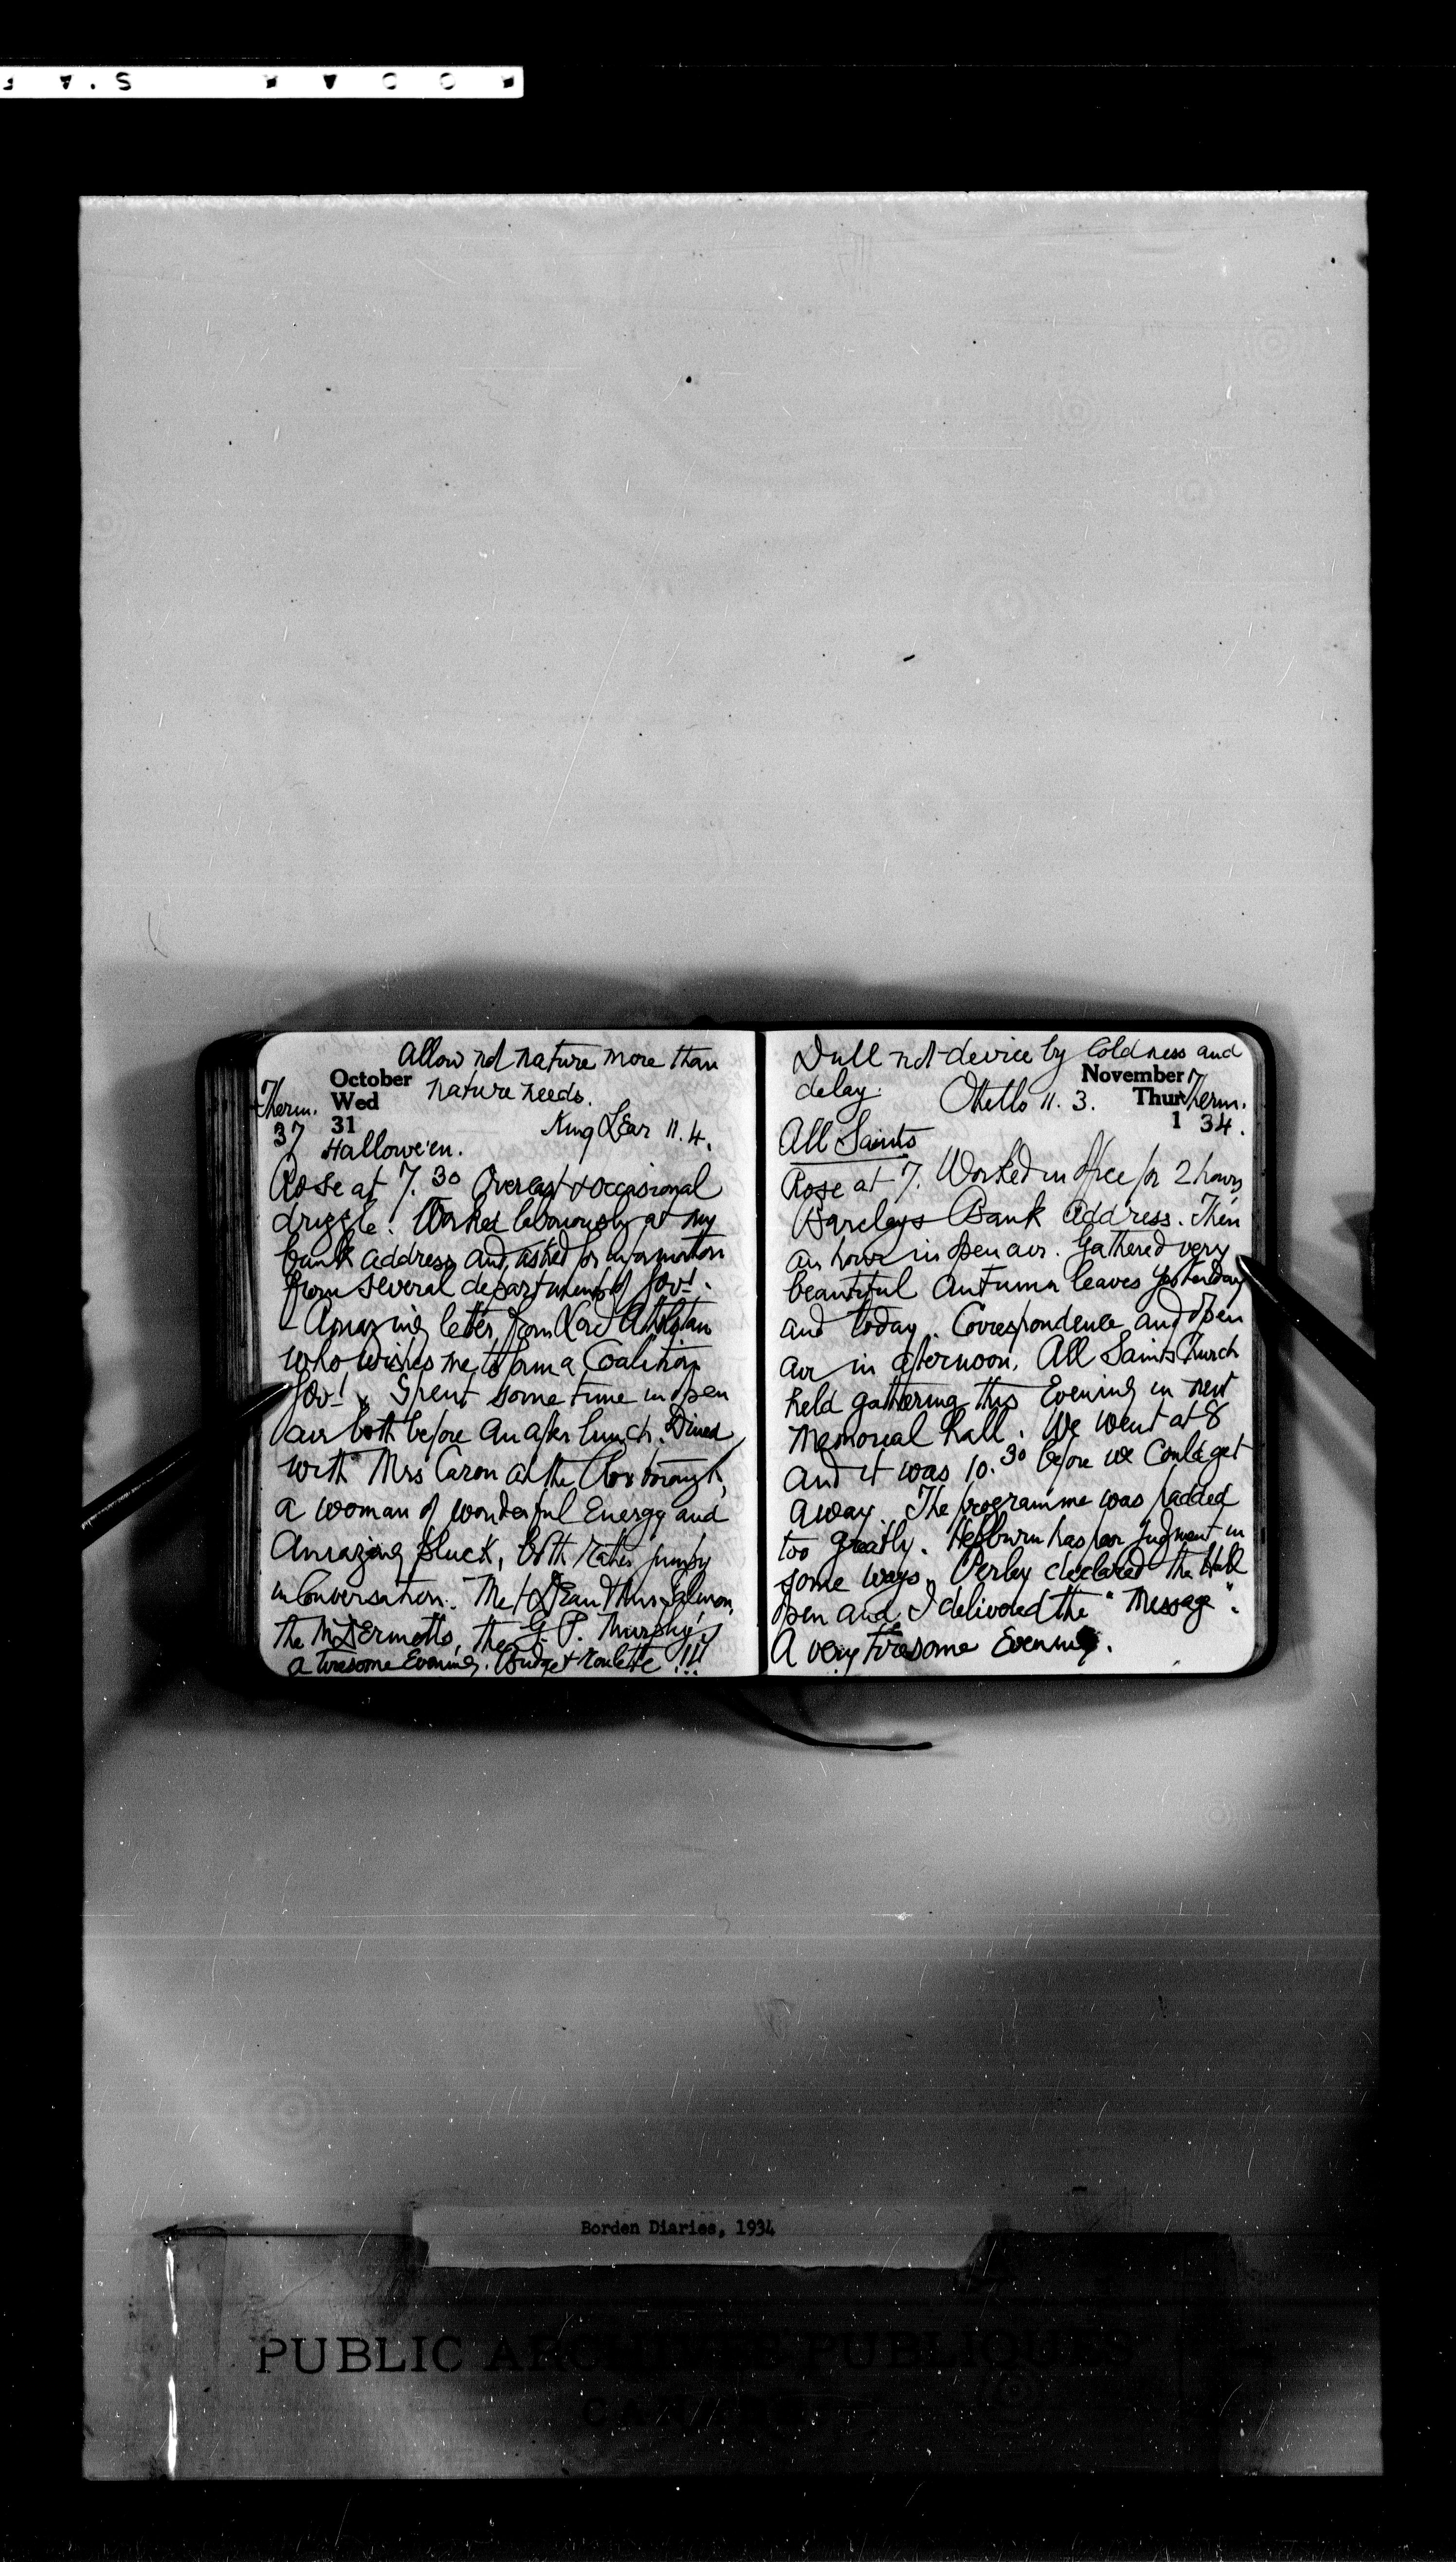 Allow not nature more than
nature needs.
King Lear 11.4.
October
Wed
31
Therm.
37
Hallowe'en.
Rose at 7.30 Overcast & occasional
drizzle. Worked laboriously at my
bank address and asked for information
from several departments of Govt.
- Amazing letter from Lord Atholstan
who wishes me to form a Coalition
Govt. Spent some time in open
air both before an after lunch. Dined
with Mrs Caron at the Roxborough,
a woman of wonderful energy and
amazing pluck, both rather jumpy
in conversation. Met Dean & Mrs Salmon,
the McDermotts, the G. P. Murphy's
a tiresome evening. Budget roulette !!!
Dull not device by coldness and
delay. Othello 11. 3.
November
Thur
1
Therm.
34.
All Saints
Rose at 7. Worked in office for 2 hours
Barclays Bank address. Then
an hour in open air. Gathered very
beautiful autumn leaves yesterday
and today. Correspondence and open
air in afternoon. All Saints Church
held gathering this evening in new
Memorial hall. We went at 8
and it was 10.30 before we could get
away. The programme was padded
too greatly. Hepburn has poor judgment in
some ways. Perley declared the Hall
open and I delivered the "Message".
A very tiresome evening.
Borden Diaries, 1934
PUBLIC ARCHIVES PUBLIQUES
CANADA